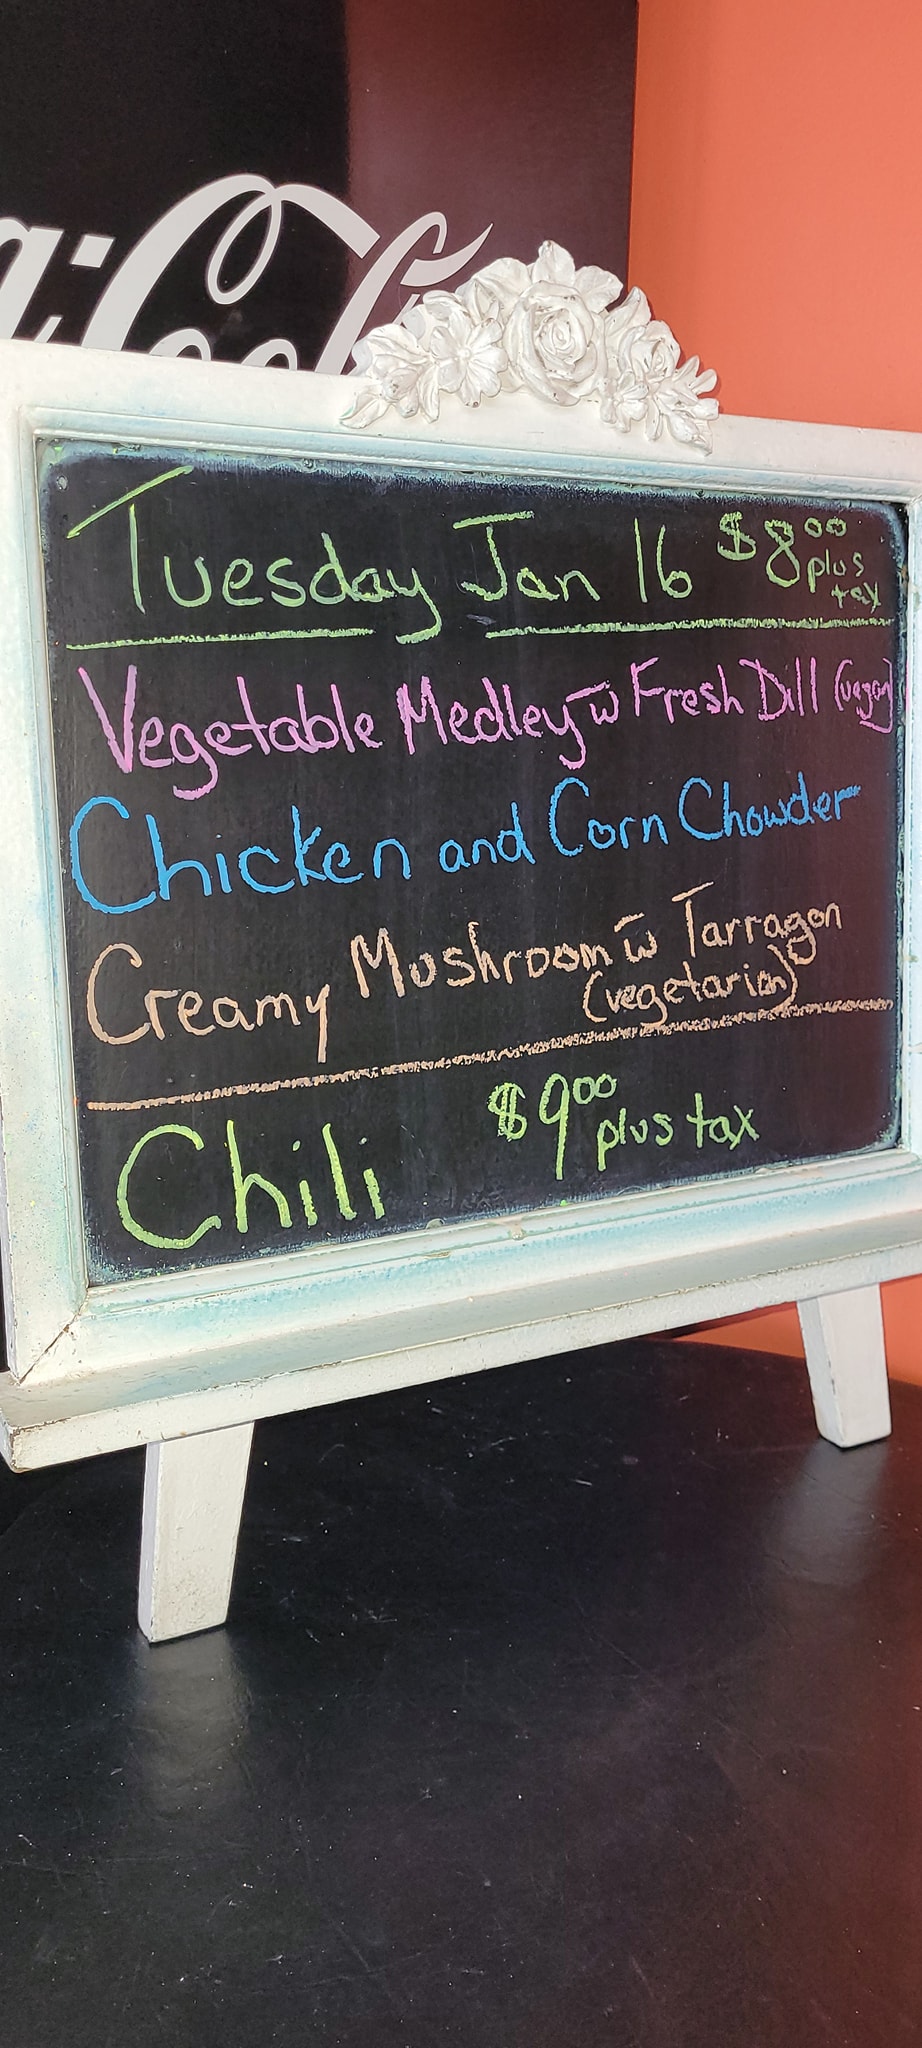 a-Cola
Tuesday Jan 16 $8.00 plus tax
Vegetable Medley w̄ Fresh Dill (vegan)
Chicken and Corn Chowder
Creamy Mushroom w̄ Tarragon
(vegetarian)
Chili $9.00 plus tax